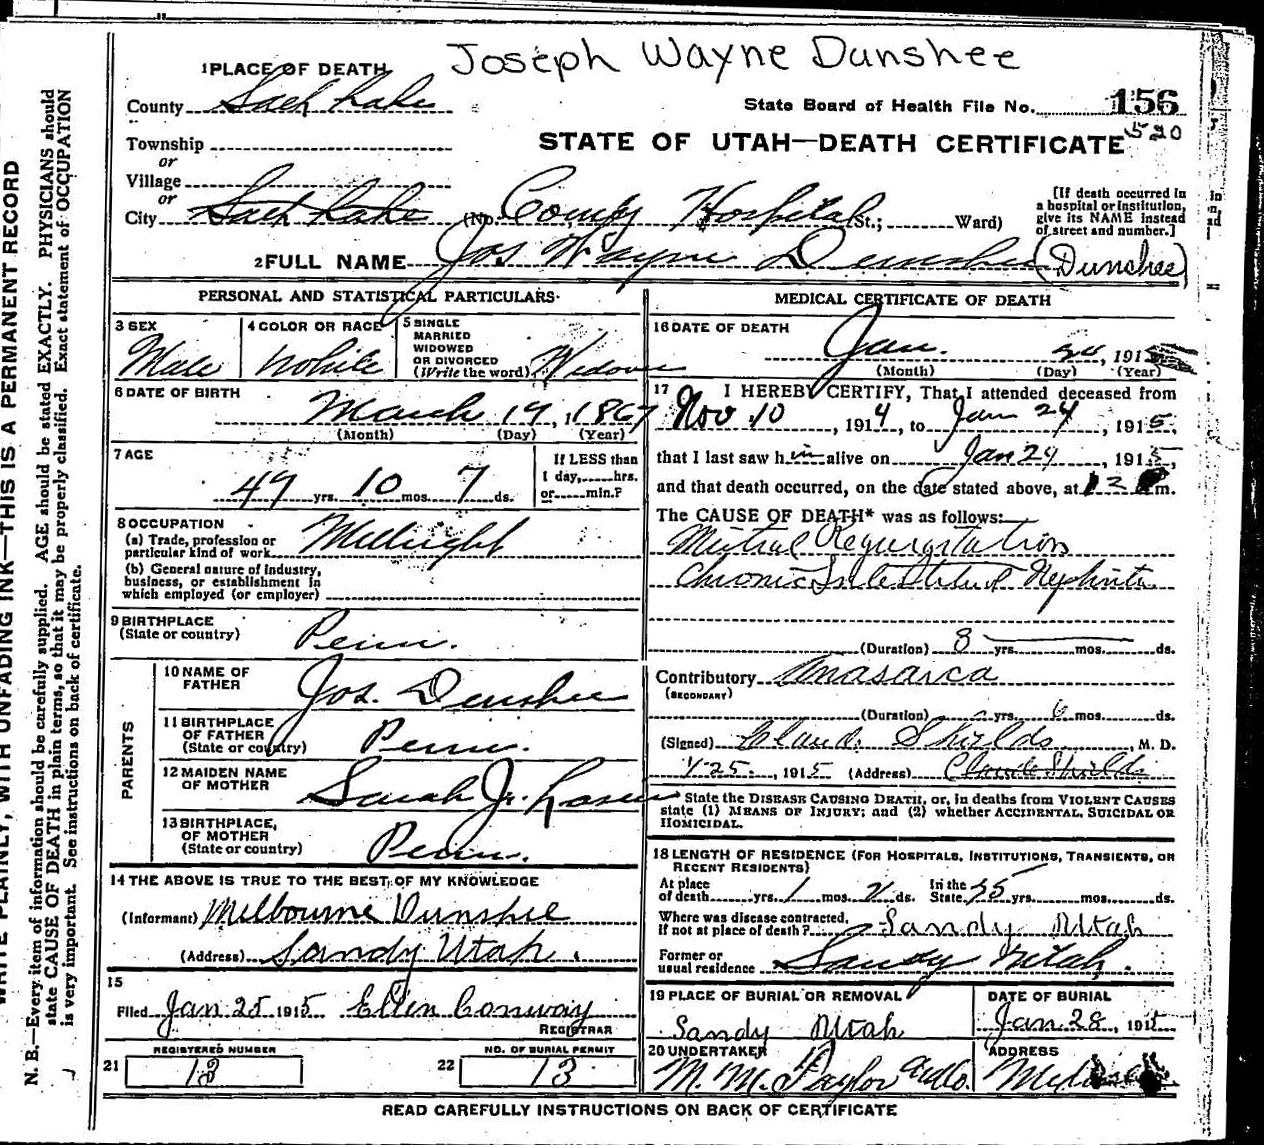 Joseph Wayne Dunshee
1 PLACE OF DEATH
County Salt Lake
State Board of Health File No. 156
520
Township
STATE OF UTAH—DEATH CERTIFICATE
or
Village
or
City Salt Lake (No. County Hospital St.; Ward)
[If death occurred in
a hospital or institution,
give its NAME instead
of street and number.]
2 FULL NAME Jos Wayne Dunshee (Dunshee)
PERSONAL AND STATISTICAL PARTICULARS
3 SEX
Male
4 COLOR OR RACE
White
5 SINGLE
MARRIED
WIDOWED
OR DIVORCED
(Write the word) Widower
6 DATE OF BIRTH
March 17, 1867
(Month) (Day) (Year)
7 AGE
47 yrs. 10 mos. 7 ds.
If LESS than
1 day, hrs.
or min.?
8 OCCUPATION
(a) Trade, profession or
particular kind of work Millright
(b) General nature of industry,
business, or establishment in
which employed (or employer)
9 BIRTHPLACE
(State or country) Penn.
PARENTS
10 NAME OF
FATHER Jos. Dunshee
11 BIRTHPLACE
OF FATHER
(State or country) Penn.
12 MAIDEN NAME
OF MOTHER Sarah J.
13 BIRTHPLACE,
OF MOTHER
(State or country) Penn.
14 THE ABOVE IS TRUE TO THE BEST OF MY KNOWLEDGE
(Informant) Melbourne Dunshee
(Address) Sandy Utah.
15
Filed Jan 25 1915 Ellen Conway
REGISTRAR
21 REGISTERED NUMBER
13
22 NO. OF BURIAL PERMIT
13
MEDICAL CERTIFICATE OF DEATH
16 DATE OF DEATH
Jan. 24, 191
(Month) (Day) (Year)
17 I HEREBY CERTIFY, That I attended deceased from
Nov 10, 1914, to Jan 24, 1915,
that I last saw him alive on Jan 24, 1915,
and that death occurred, on the date stated above, at 12 m.
The CAUSE OF DEATH* was as follows:
Mitral Regurgitation
Chronic Interstitial Nephritis
(Duration) 8 yrs. mos. ds.
Contributory Anasarca
(SECONDARY)
(Duration) yrs. 6 mos. ds.
(Signed) Claude Shields, M. D.
1/25, 1915 (Address) Claude Shields
* State the DISEASE CAUSING DEATH, or, in deaths from VIOLENT CAUSES
state (1) MEANS OF INJURY; and (2) whether ACCIDENTAL, SUICIDAL OR
HOMICIDAL.
18 LENGTH OF RESIDENCE (FOR HOSPITALS, INSTITUTIONS, TRANSIENTS, OR
RECENT RESIDENTS)
At place
of death yrs. 1 mos. ds. In the
State yrs. mos. ds.
Where was disease contracted,
If not at place of death? Sandy Utah
Former or
usual residence Sandy Utah.
19 PLACE OF BURIAL OR REMOVAL
Sandy Utah
DATE OF BURIAL
Jan 28, 1915
20 UNDERTAKER
M. M. Taylor
ADDRESS
READ CAREFULLY INSTRUCTIONS ON BACK OF CERTIFICATE
WRITE PLAINLY, WITH UNFADING INK—THIS IS A PERMANENT RECORD
N. B.—Every item of information should be carefully supplied. AGE should be stated EXACTLY. PHYSICIANS should
state CAUSE OF DEATH in plain terms, so that it may be properly classified. Exact statement of OCCUPATION
is very important. See instructions on back of certificate.